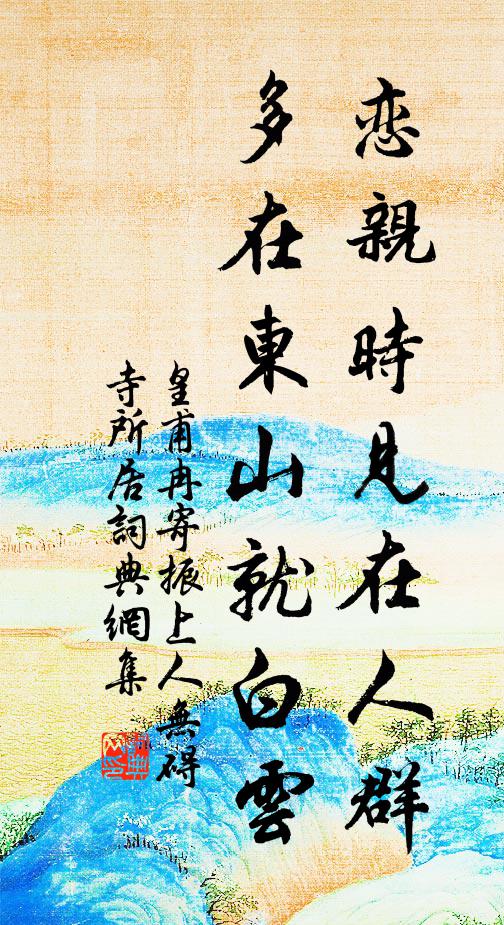 恋親時見在人群
多在東山就白雲
皇甫冉寄振上人無碍
寺所居詞典網集